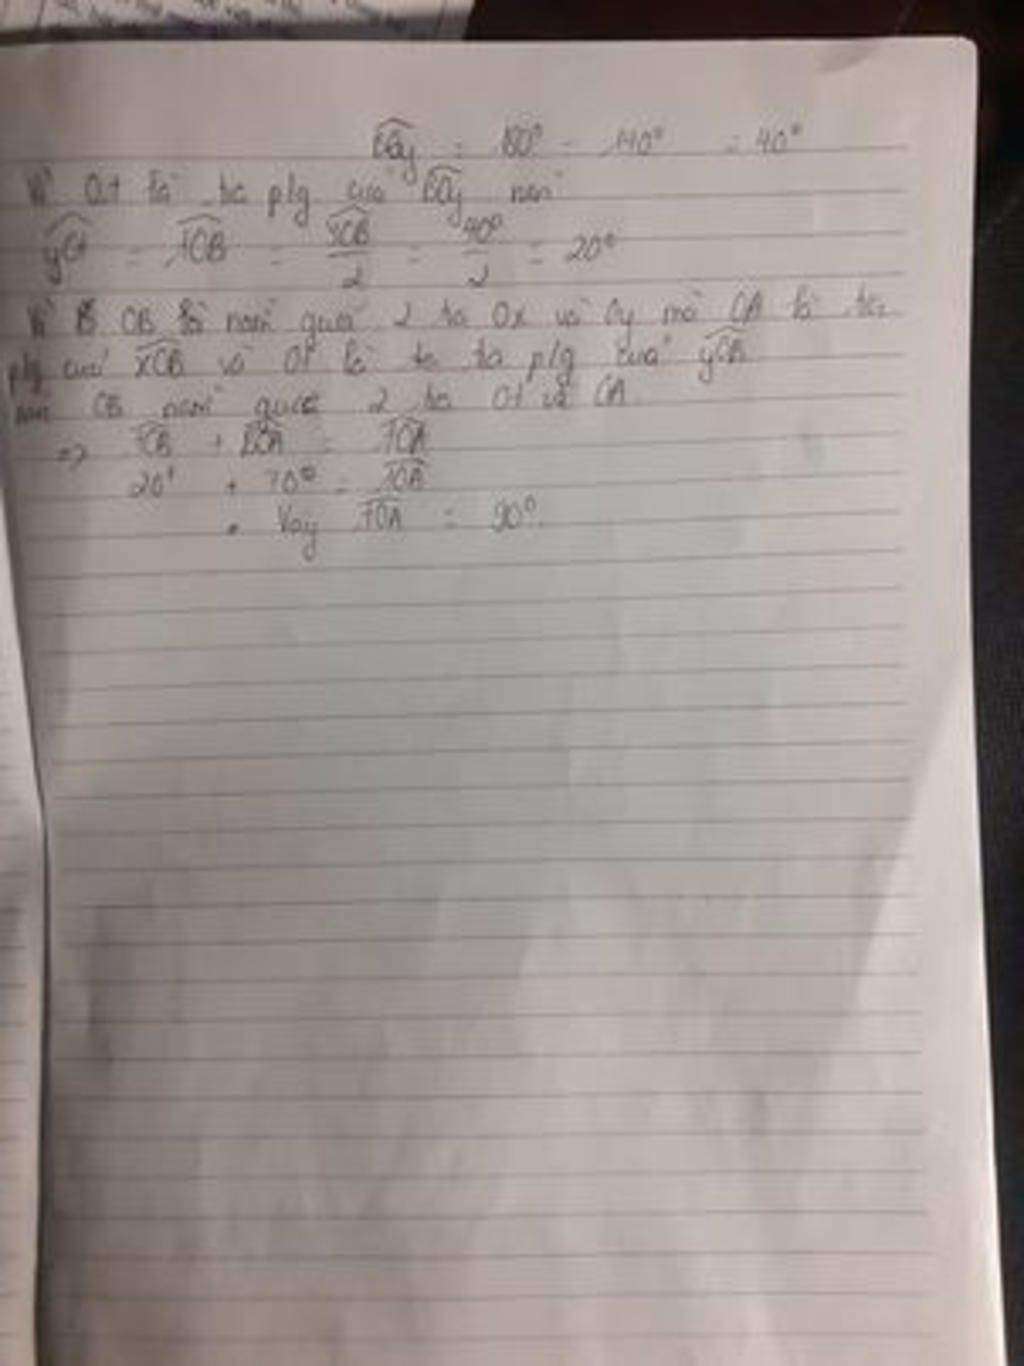 BOy = 180° - 140° = 40°
Vì Ot là tia p/g của BOy nên
yOt = TOB = yOB/2 = 40°/2 = 20°
Vì OB là nằm giữa 2 tia Ox và Oy mà OA là tia
p/g của xOB và Ot là ta tia p/g của yOB
nên OB nằm giữa 2 tia Ot và OA
=> TOB + BOA = TOA
20° + 70° = TOA
Vậy TOA = 90°.